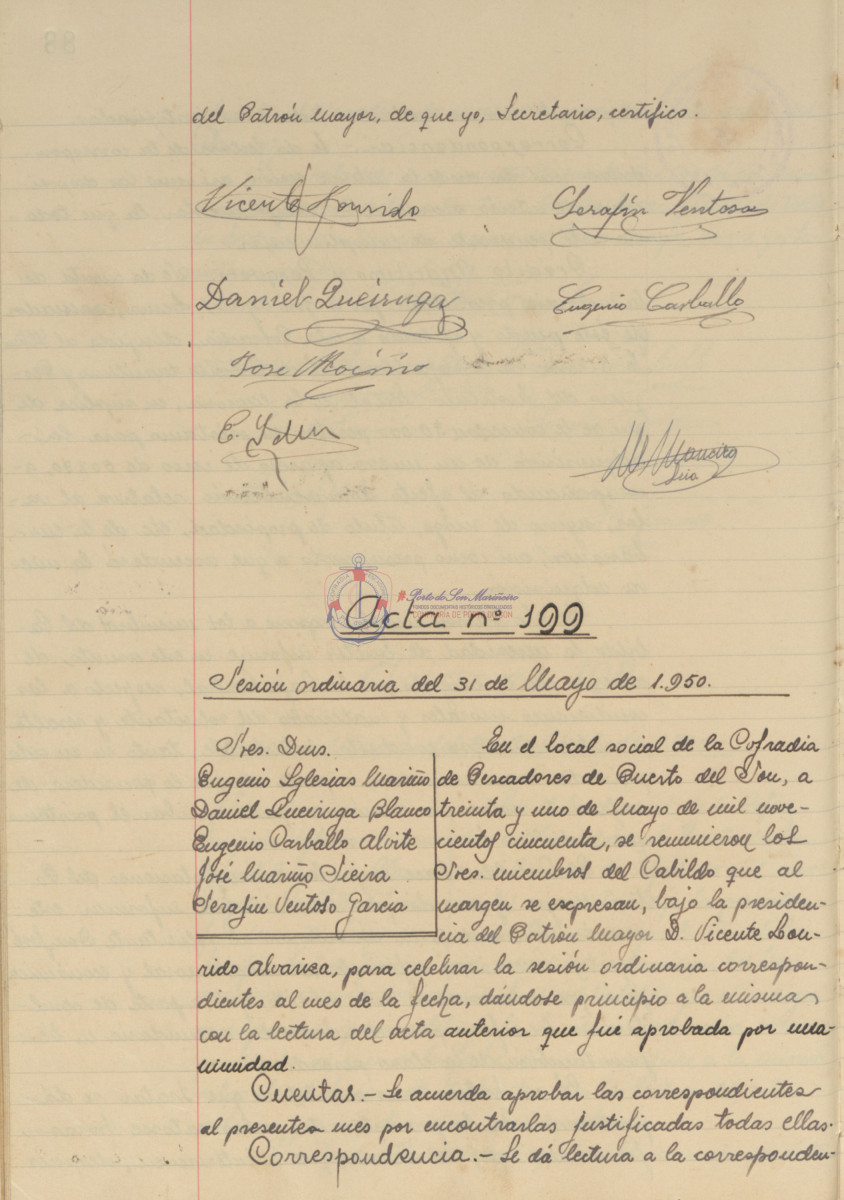 del Patrón Mayor, de que yo, Secretario, certifico.
Vicente Lourido
Serafín Ventoso
Daniel Queiruga
Eugenio Carballo
Jose Mariño
E. Igles
M. Maneiro
Srio
# Porto do Son Mariñeiro
FONDOS DOCUMENTAIS HISTÓRICOS DIXITALIZADOS
Acta nº 199
Sesión ordinaria del 31 de Mayo de 1.950.
Sres. Dms.
Eugenio Iglesias Mariño
Daniel Queiruga Blanco
Eugenio Carballo Alvite
José Mariño Sieira
Serafín Ventoso Garcia
En el local social de la Cofradia
de Pescadores de Puerto del Son, a
treinta y uno de Mayo de mil nove-
cientos cincuenta, se reunnieron los
Sres. miembros del Cabildo que al
margen se expresan, bajo la presiden-
cia del Patrón Mayor D. Vicente Lou-
rido Alvariza, para celebrar la sesión ordinaria correspon-
dientes al mes de la fecha, dándose principio a la misma
con la lectura del acta anterior que fué aprobada por una-
nimidad.
Cuentas.- Se acuerda aprobar las correspondientes
al presente mes por encontrarlas justificadas todas ellas.
Correspondencia.- Se dá lectura a la corresponden-